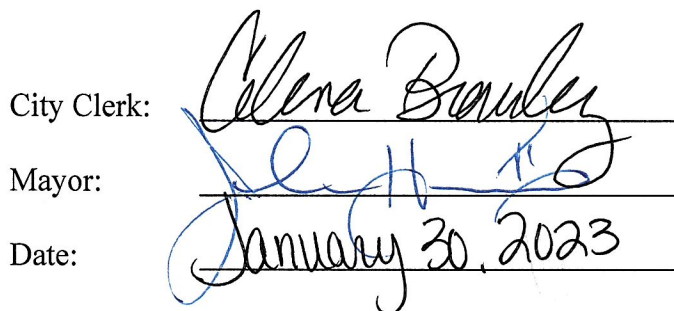 City Clerk: Celena
Mayor:
Date: January 30, 2023